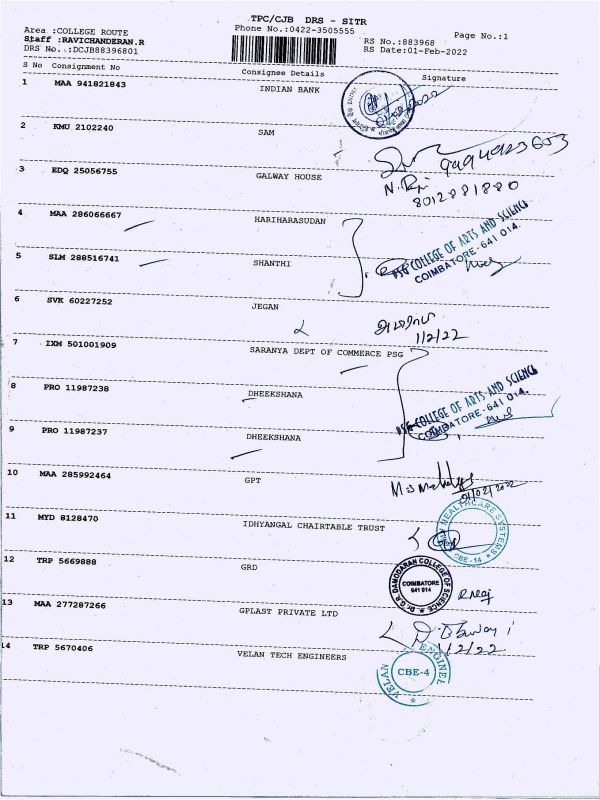 TPC/CJB DRS - SITR
Area :COLLEGE ROUTE
Phone No.:0422-3505555
Page No.:1
Staff :RAVICHANDERAN.R
RS No.:883968
DRS No.:DCJB88396801
RS Date:01-Feb-2022
S No Consignment No Consignee Details Signature
1 MAA 941821843 INDIAN BANK
2 KMU 2102240 SAM
3 EDQ 25056755 GALWAY HOUSE
8012881880
4 MAA 286066667 HARIHARASUDAN
PSG COLLEGE OF ARTS AND SCIENCE
COIMBATORE-641 014.
5 SLM 288516741 SHANTHI
6 SVK 60227252 JEGAN
1/2/22
7 IXM 501001909 SARANYA DEPT OF COMMERCE PSG
8 PRO 11987238 DHEEKSHANA
PSG COLLEGE OF ARTS AND SCIENCE
COIMBATORE-641 014.
9 PRO 11987237 DHEEKSHANA
10 MAA 285992464 GPT
11 MYD 8128470 IDHYANGAL CHAIRTABLE TRUST
HEALTHCARE SYSTEMS
CBE-14
12 TRP 5669888 GRD
Dr.G.R.DAMODARAN COLLEGE OF SCIENCE
COIMBATORE
641 014
13 MAA 277287266 GPLAST PRIVATE LTD
1/2/22
14 TRP 5670406 VELAN TECH ENGINEERS
VELAN
CBE-4